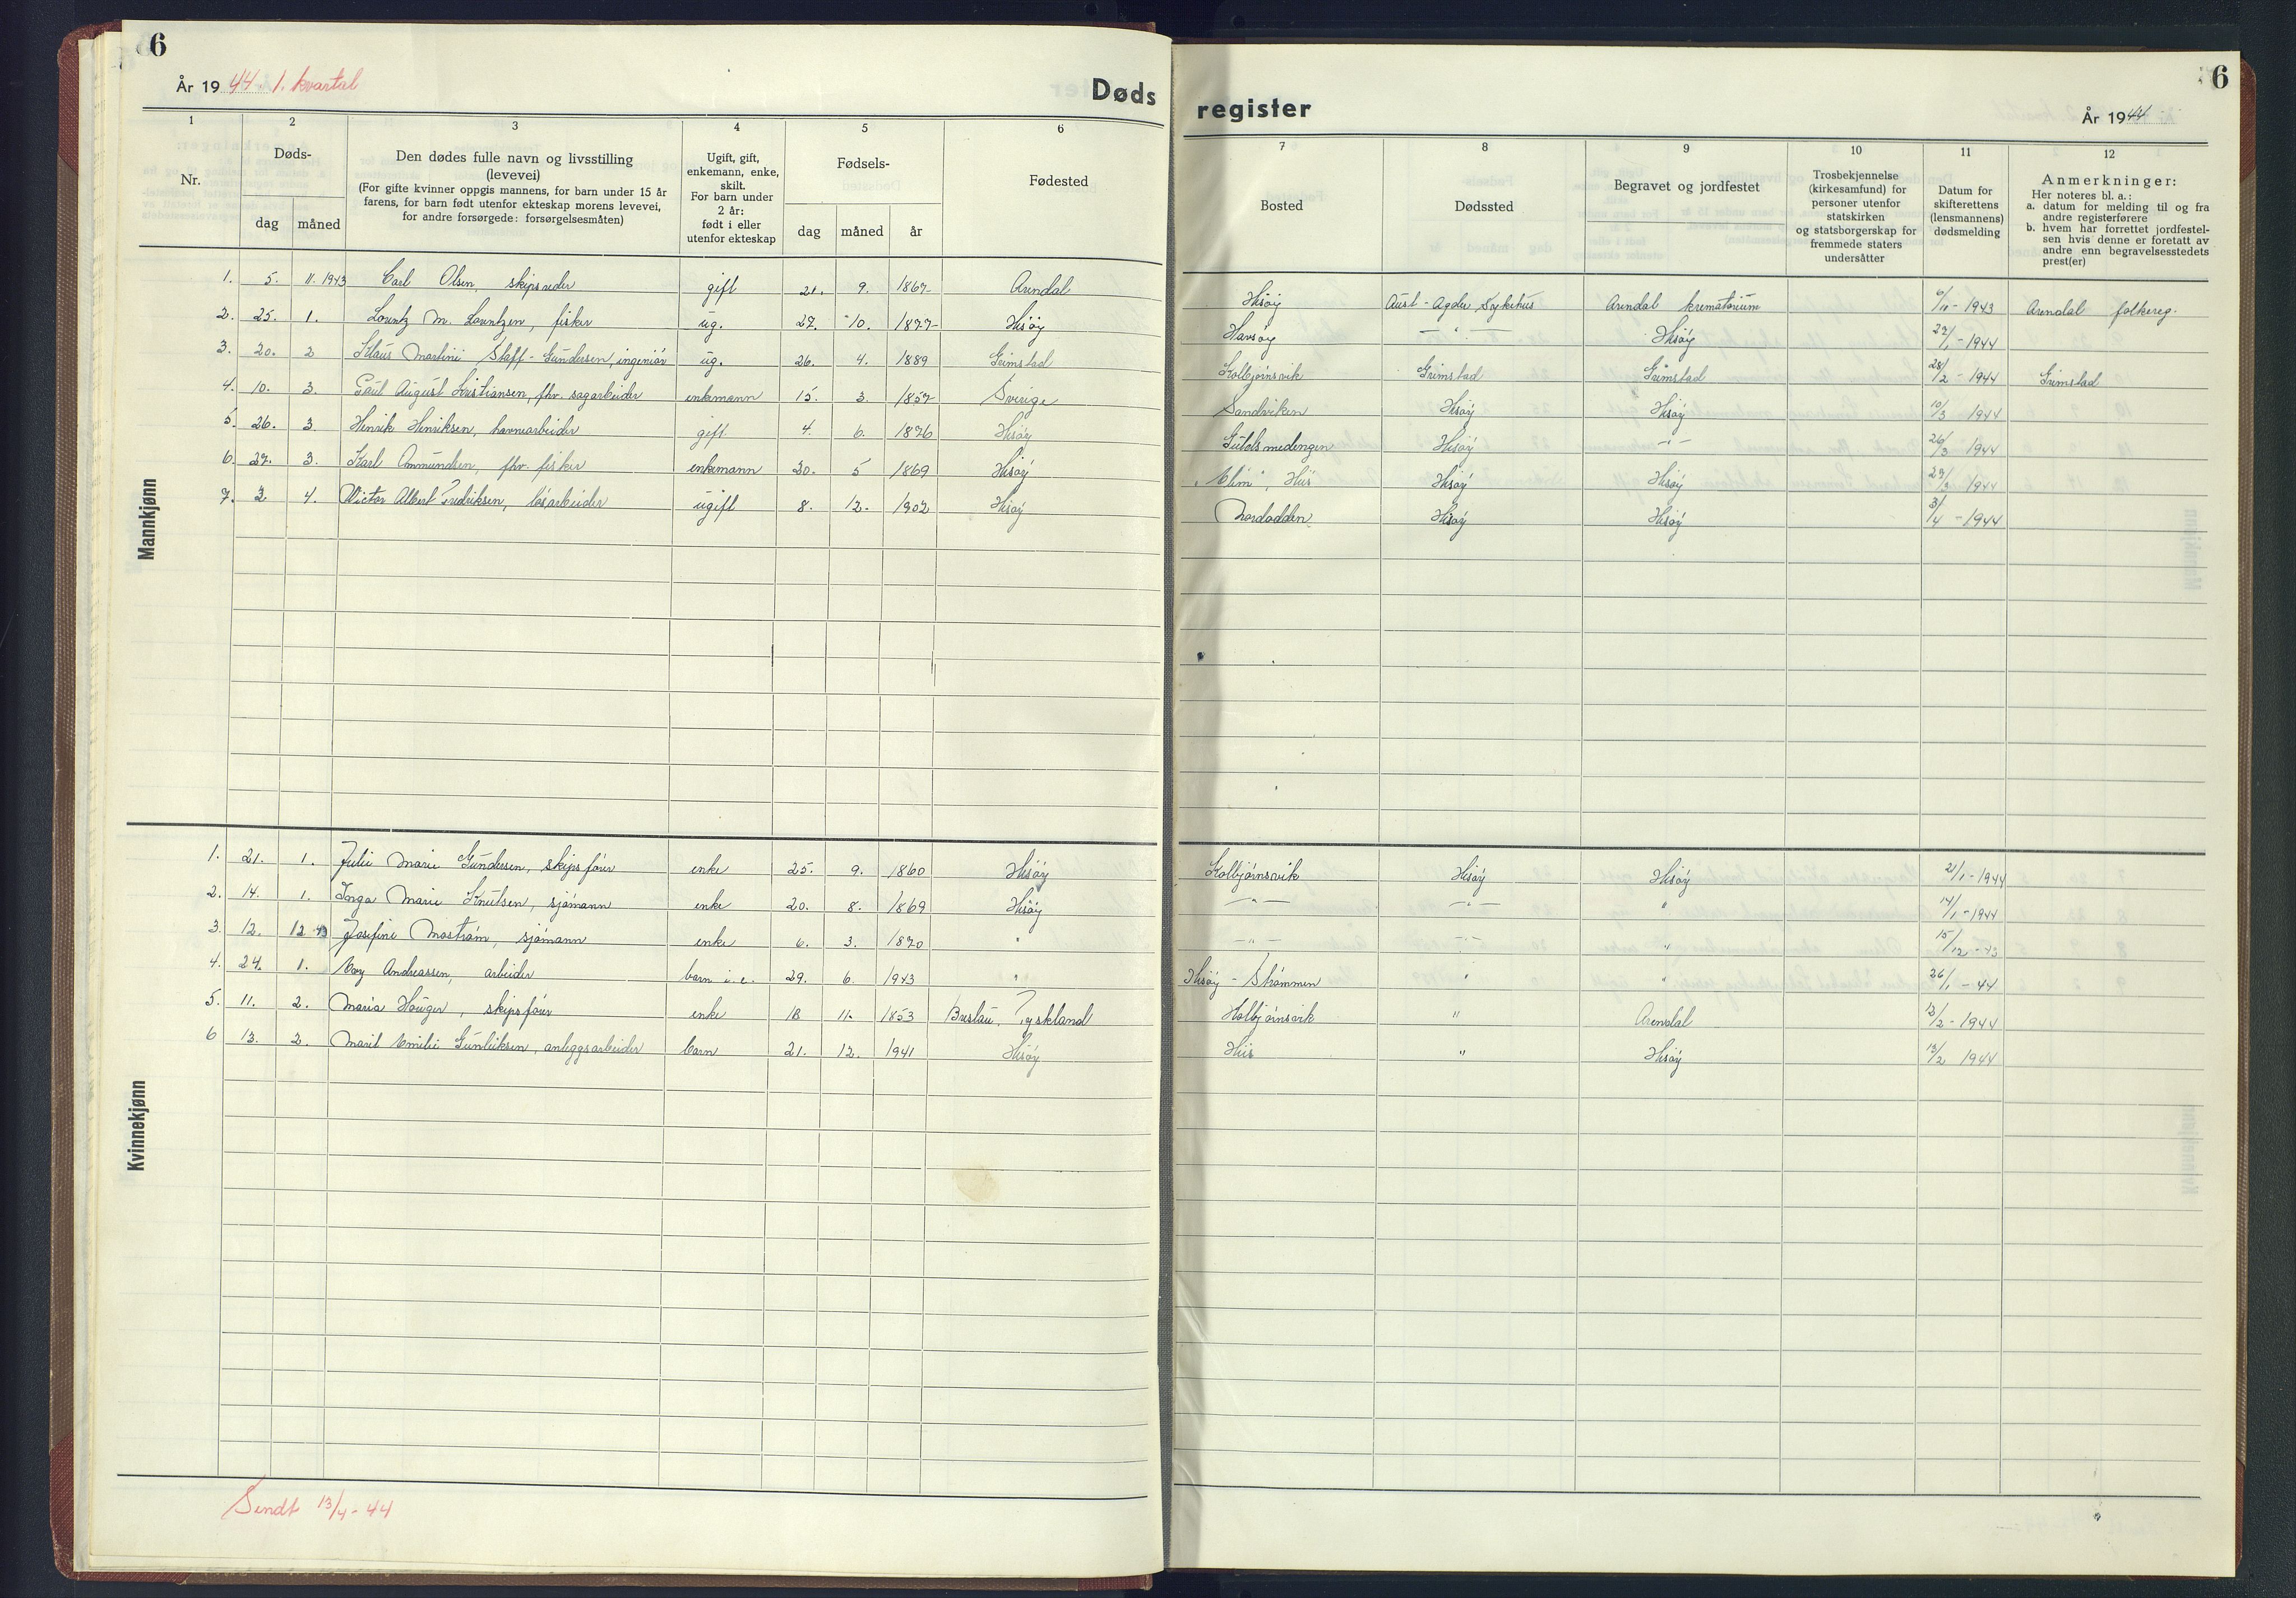 6
År 1944. 1. kvartal
Døds
1 2 3 4 5 6
Nr.
Døds-
dag måned
Den dødes fulle navn og livsstilling
(levevei)
(For gifte kvinner oppgis mannens, for barn under 15 år
farens, for barn født utenfor ekteskap morens levevei,
for andre forsørgede: forsørgelsesmåten)
Ugift, gift,
enkemann, enke,
skilt.
For barn under
2 år:
født i eller
utenfor ekteskap
Fødsels-
dag måned år
Fødested
Mannkjønn
1. 5. 11. 1943 Carl Olsen, skipsreder gift 21. 9. 1867 Arendal
2. 25. 1. Lorentz M. Lorentzen, fisker ug. 27. 10. 1877 Hisøy
3. 20. 2 Klaus Martini Staff-Gundersen, ingeniør ug. 26. 4. 1889 Grimstad
4. 10. 3. Paul August Kristiansen, fhv. sagarbeider enkemann 15. 3. 1857 Sverige
5. 26. 3. Henrik Henriksen, havnearbeider gift 4. 6. 1876 Hisøy
6. 27. 3. Karl Ammundsen, fhv. fisker enkemann 30. 5 1869 Hisøy
7. 3 4. Victor Albert Fredriksen, løsarbeider ugift 8. 12. 1902 Hisøy
Kvinnekjønn
1. 21. 1. Julie Marie Gundersen, skipsfører enke 25. 9. 1860 Hisøy
2. 14. 1. Inga Marie Knutsen, sjømann enke 20. 8. 1869 Hisøy
3. 12. 12 43 Josefine Mostrøm, sjømann enke 6. 3. 1870 "
4. 24. 1. Andreassen, arbeider barn i.e. 29. 6. 1943 "
5. 11. 2. Maria Houger, skipsfører enke 18 11. 1853 Breslau, Tyskland
6 13. 2. Marit Emilie Gunleiksen, anleggsarbeider barn 21. 12. 1941 Hisøy
Sendt 13/4-44
6
register
År 1944
7 8 9 10 11 12
Bosted
Dødssted
Begravet og jordfestet
Trosbekjennelse
(kirkesamfund) for
personer utenfor
statskirken
og statsborgerskap for
fremmede staters
undersåtter
Datum for
skifterettens
(lensmannens)
dødsmelding
Anmerkninger:
Her noteres bl. a.:
a. datum for melding til og fra
andre registerførere
b. hvem har forrettet jordfestel-
sen hvis denne er foretatt av
andre enn begravelsesstedets
prest(er)
Hisøy Aust-Agder Sykehus Arendal krematorium 6/11-1943 Arendal folkereg.
Havsøy —"— Hisøy 27/1-1944
Kolbjørnsvik Grimstad Grimstad 28/2-1944 Grimstad
Sandviken Hisøy Hisøy 10/3 1944
Gullsmedengen Hisøy —"— 26/3 1944
"Elim", His Hisøy Hisøy 27/3 1944
Nordodden Hisøy Hisøy 3/4-1944
Kolbjørnsvik Hisøy Hisøy 21/1-1944
—"— —"— " 14/1-1944
—"— —"— " 15/12-43
Hisøy-Strømmen " " 26/1-44
Kolbjørnsvik " Arendal 12/2-1944
His " Hisøy 13/2 1944